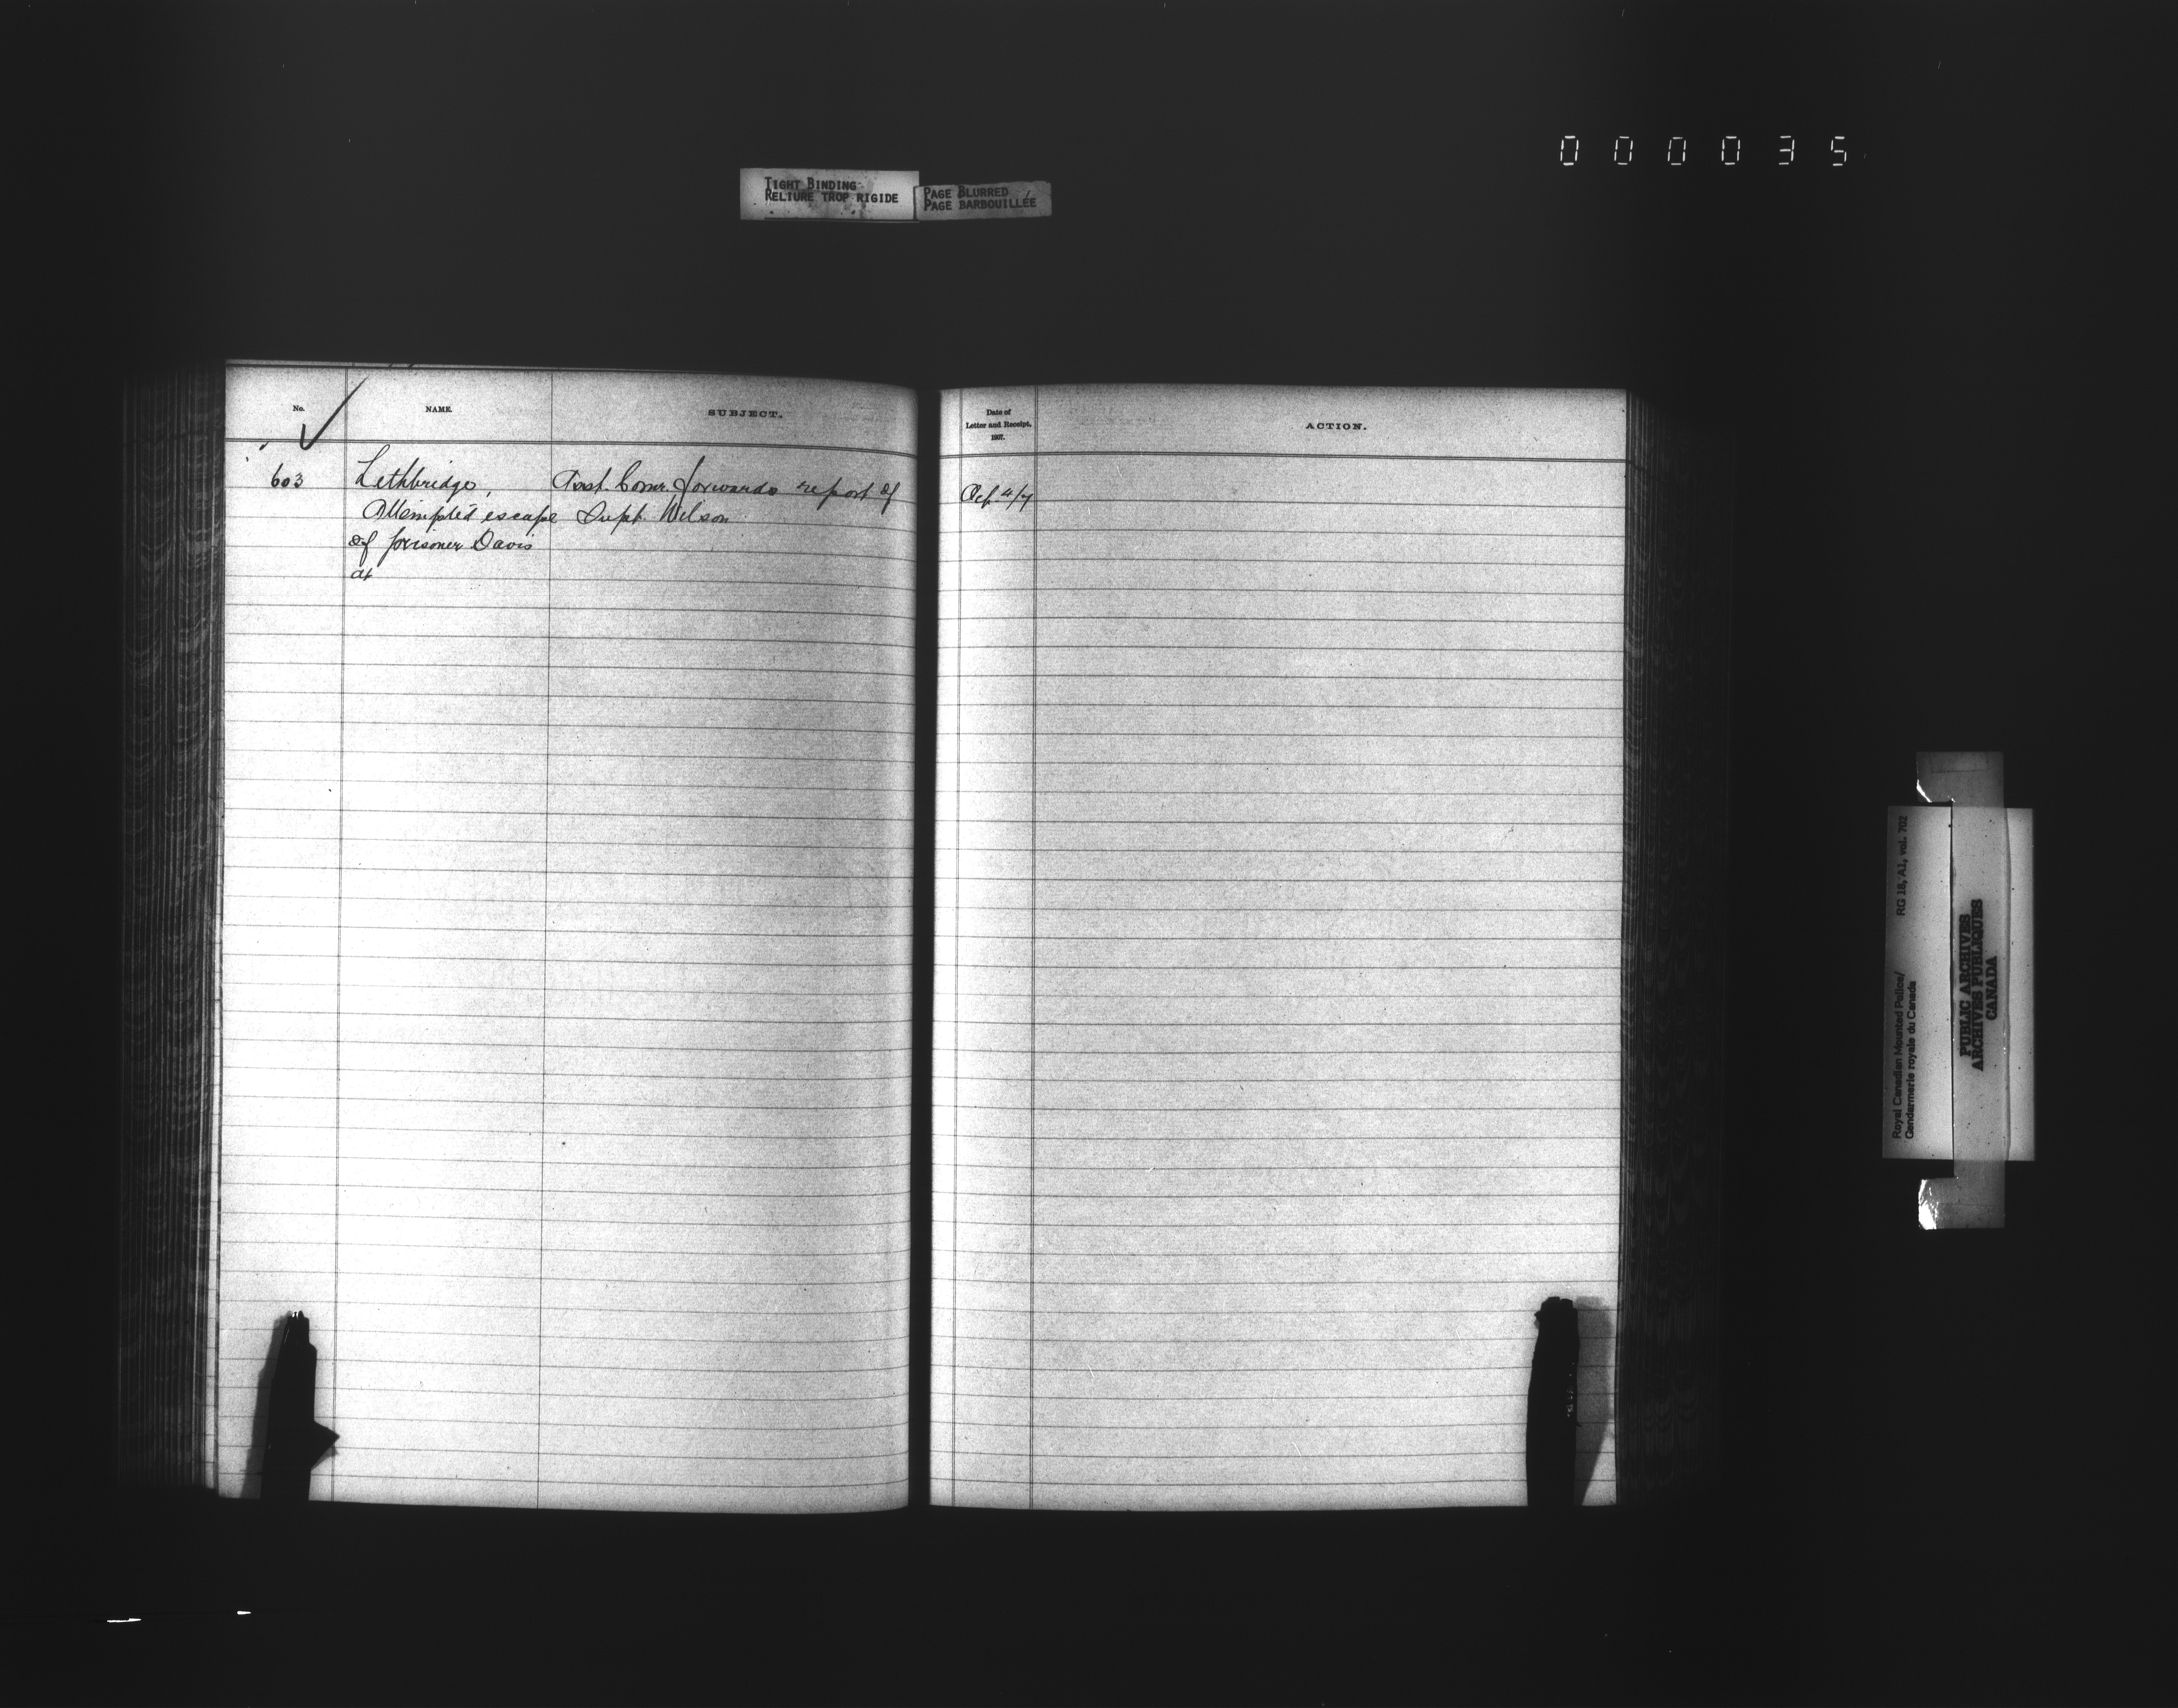 000035
TIGHT BINDING
RELIURE TROP RIGIDE
PAGE BLURRED
PAGE BARBOUILLÉE
No.
NAME.
SUBJECT.
Date of
Letter and Receipt,
1907.
ACTION.
603 Lethbridge, Asst. Comr. forwards report of
Attempted escape Supt. Wilson
of prisoner Davis
at
4/7
Royal Canadian Mounted Police/
Gendarmerie royale du Canada
RG 18, A1, vol. 702
PUBLIC ARCHIVES
ARCHIVES PUBLIQUES
CANADA